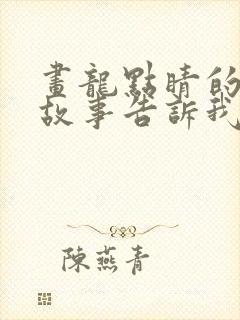 畫龍點睛的
故事告訴我
陳燕青